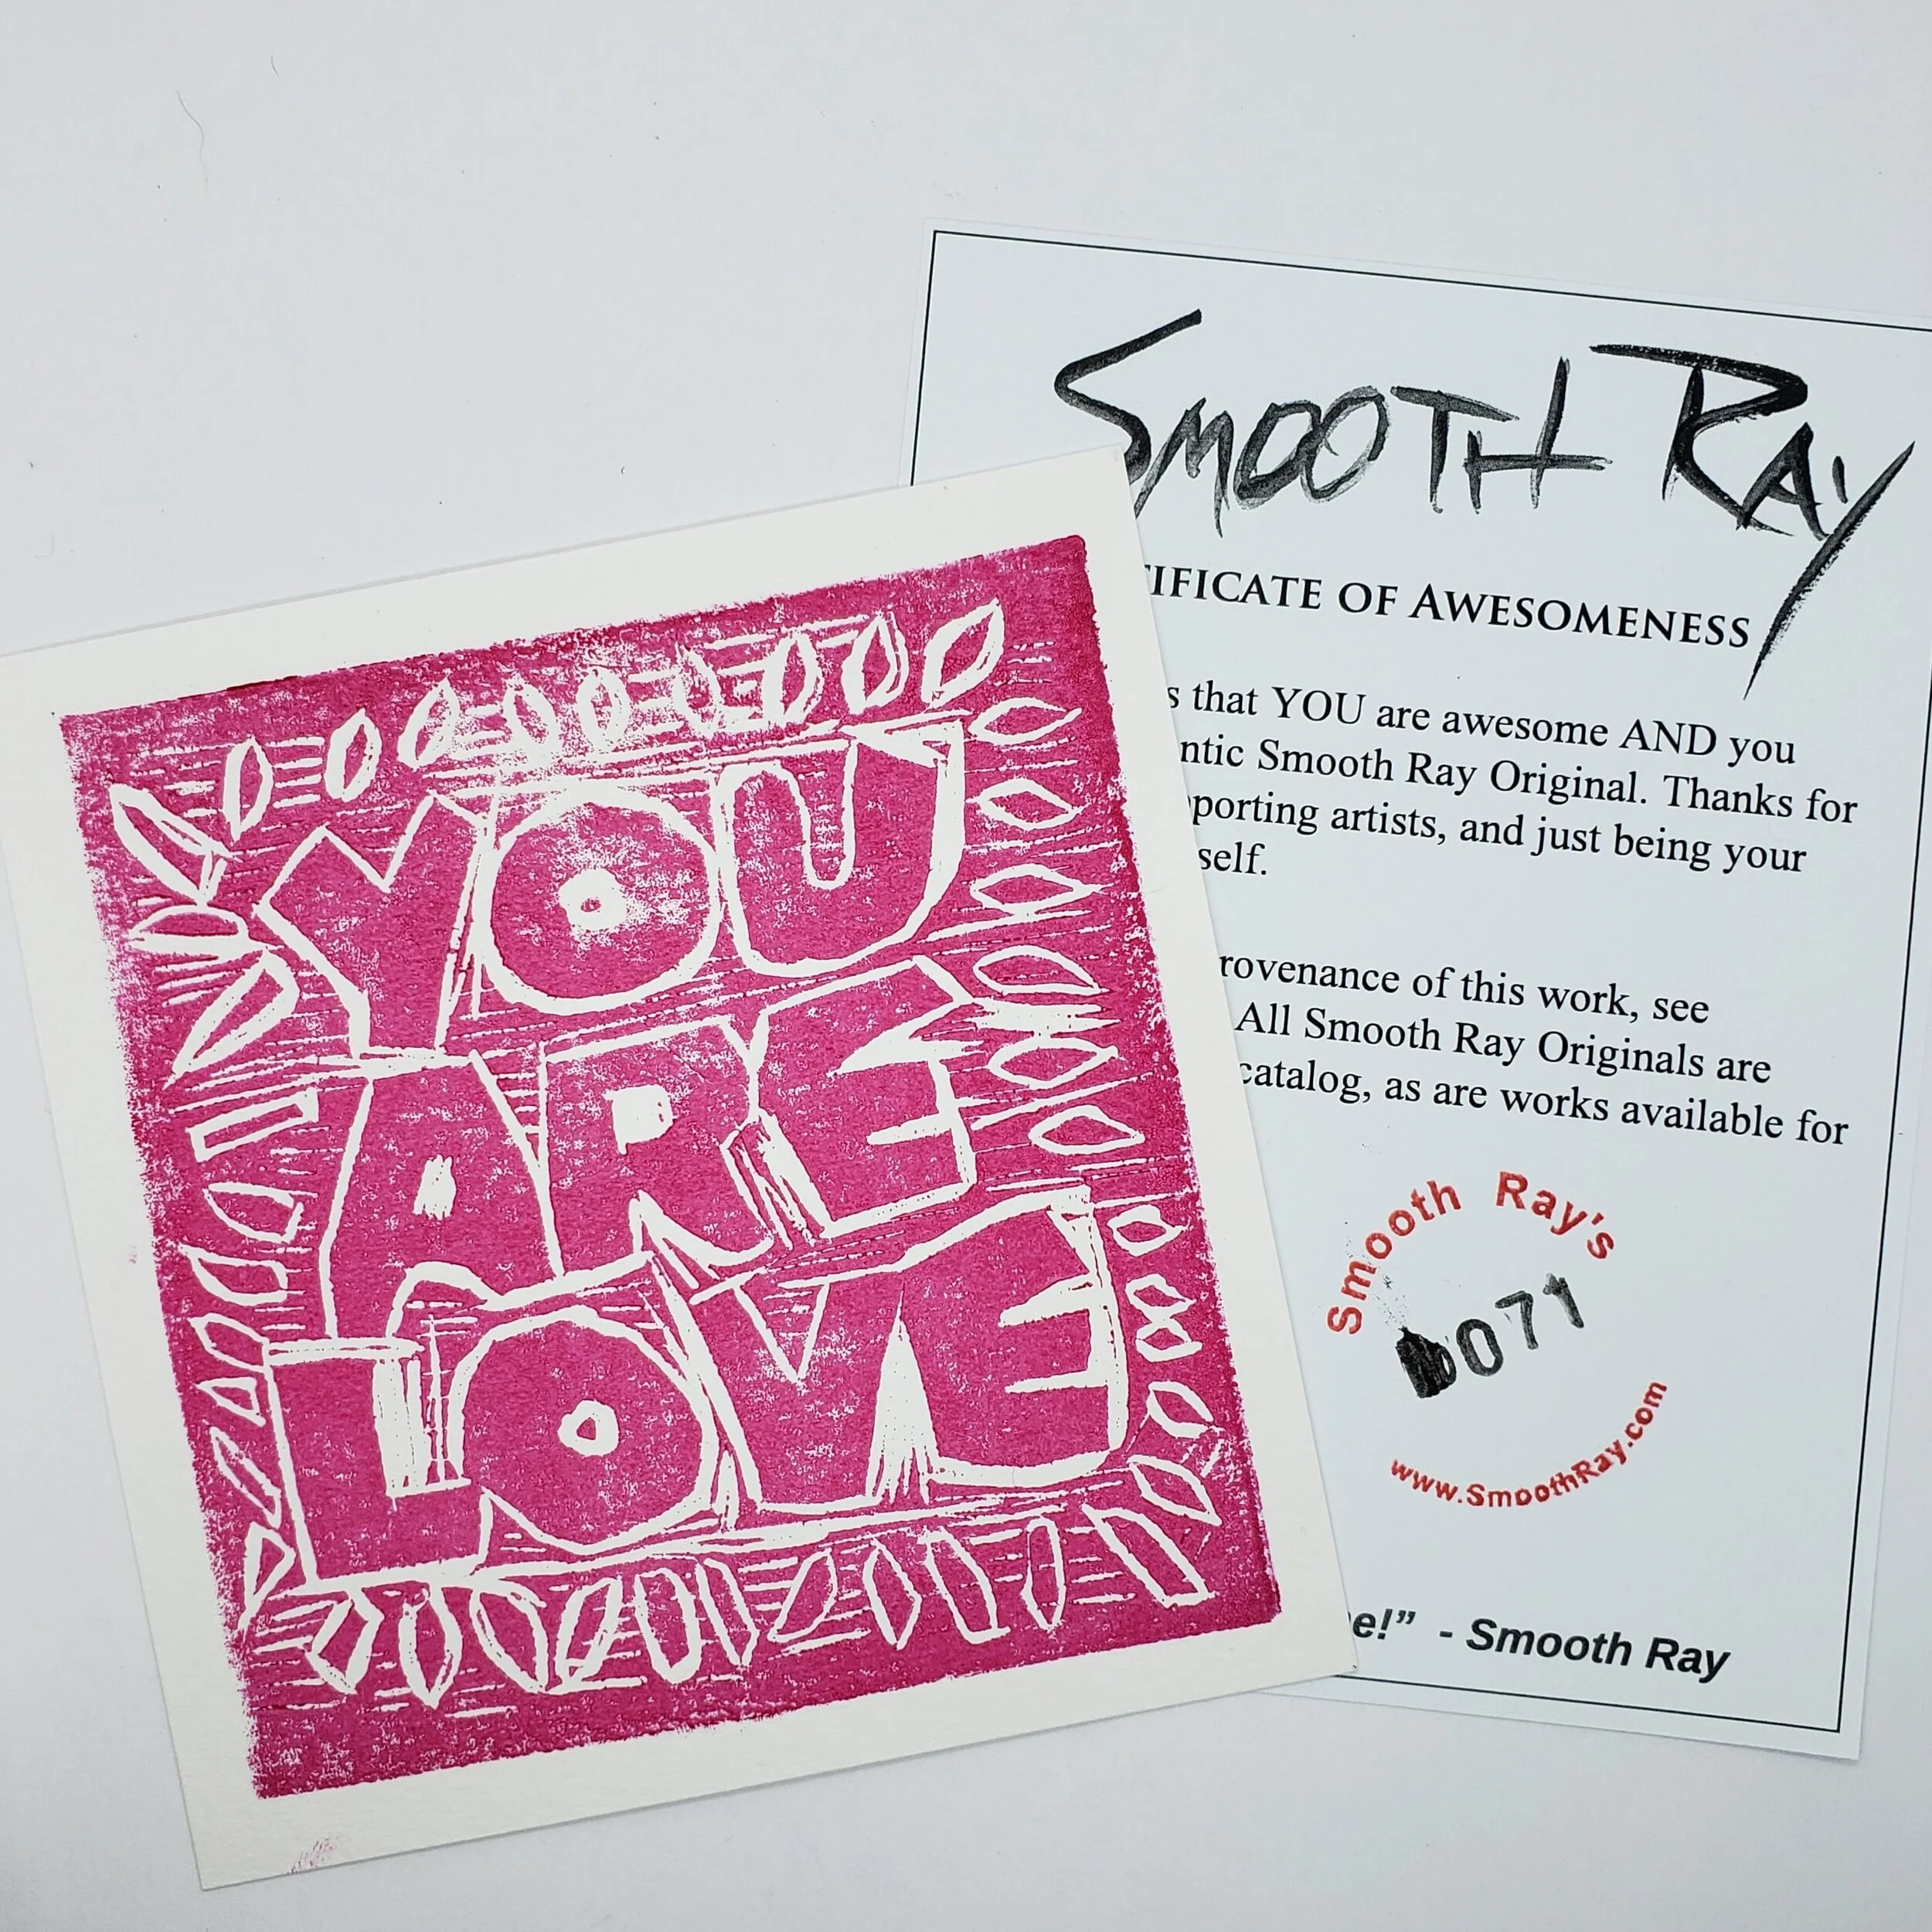 YOU
ARE
LOVE
SMOOTH RAY
TIFICATE OF AWESOMENESS
s that YOU are awesome AND you
ntic Smooth Ray Original. Thanks for
pporting artists, and just being your
self.
rovenance of this work, see
All Smooth Ray Originals are
catalog, as are works available for
Smooth Ray's
0071
www.SmoothRay.com
e!” - Smooth Ray